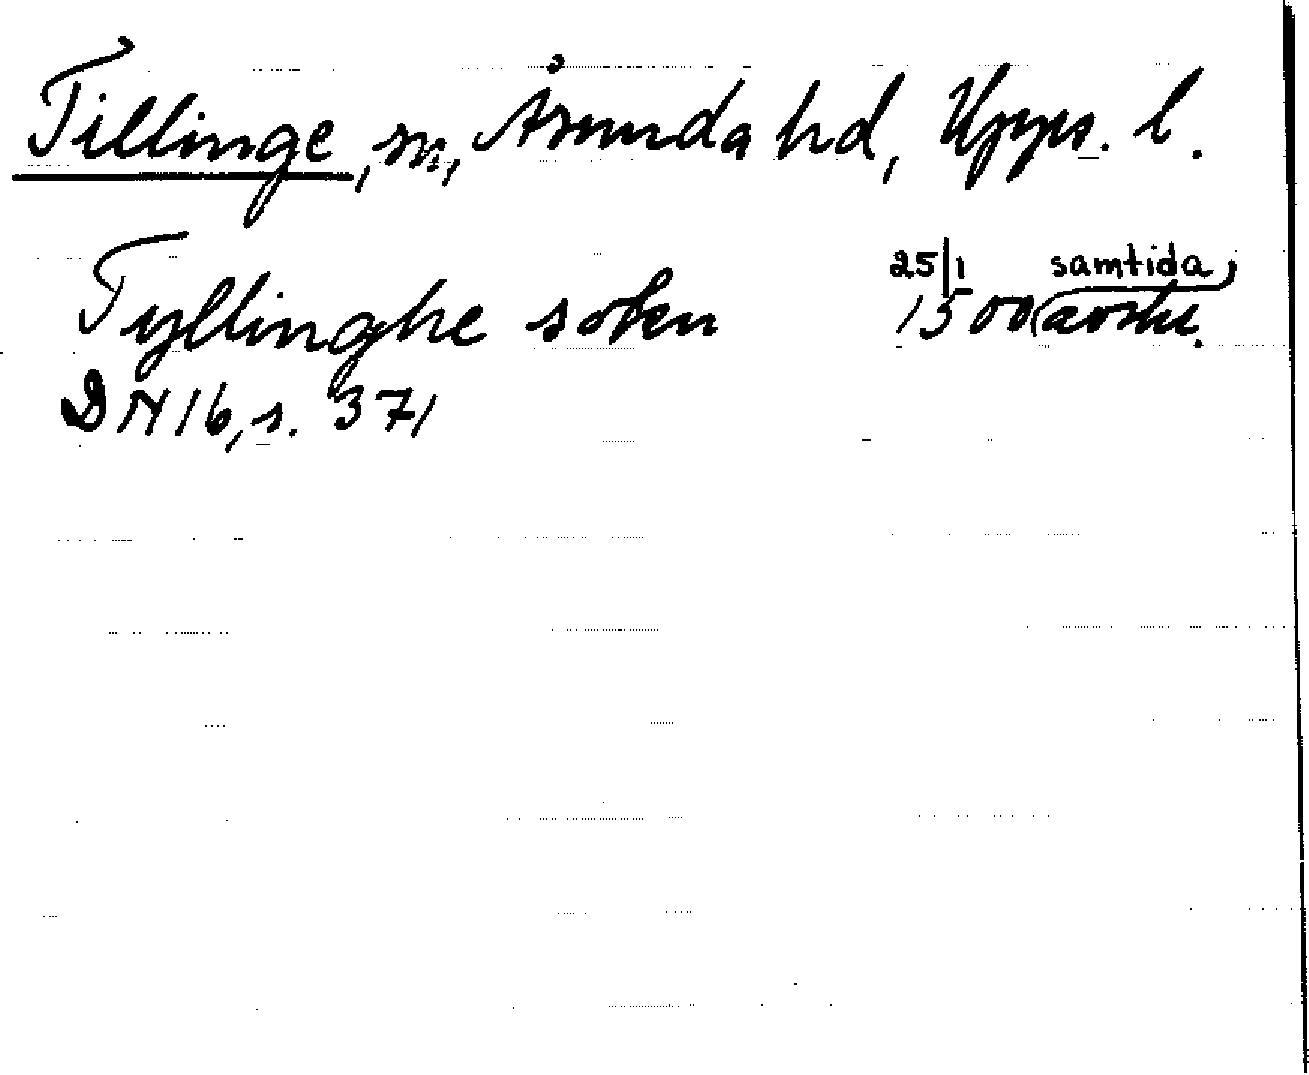 Tillinge, sn, Åsunda hd, Upps. l.
Tyllinghe soken 25/1 1500 (samtida avskr.
DN 16, s. 371